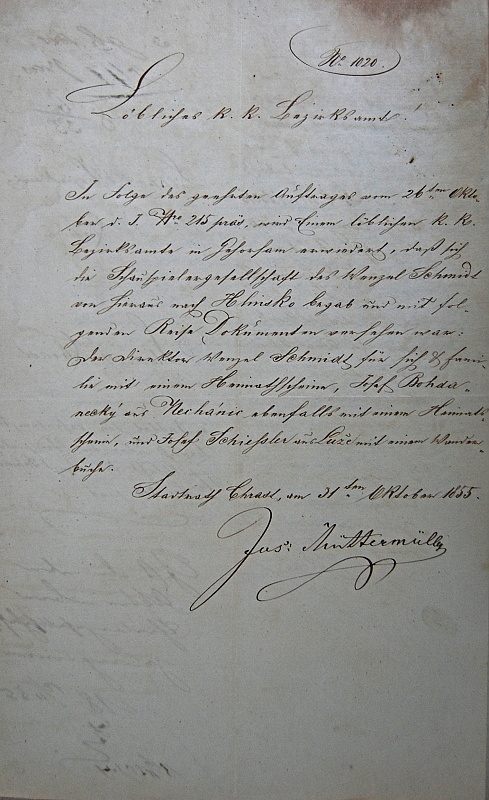 No 1020.
Löbliches k. k. Bezirksamt!
In Folge des geehrten Auftrages vom 26ten Okto-
ber d. J. No 215 präs, wird Einem löblichen k. k.
Bezirksamte in Gehorsam erwiedert, daß sich
die Schauspielergesellschaft des Wenzel Schmidt
von hieraus nach Hlinsko begab und mit fol-
genden Reise Dokumenten versehen war:
der Direktor Wenzel Schmidt für sich & Fami-
lie mit einem Heimathscheine, Josef Bohda-
necký aus Nechánic ebenfalls mit einem Heimath-
schein, und Josef Schiessler aus Luže mit einem Wander-
buche.
Stadtrath Chrast, am 31ten Oktober 1855.
Jos: Muttermüller